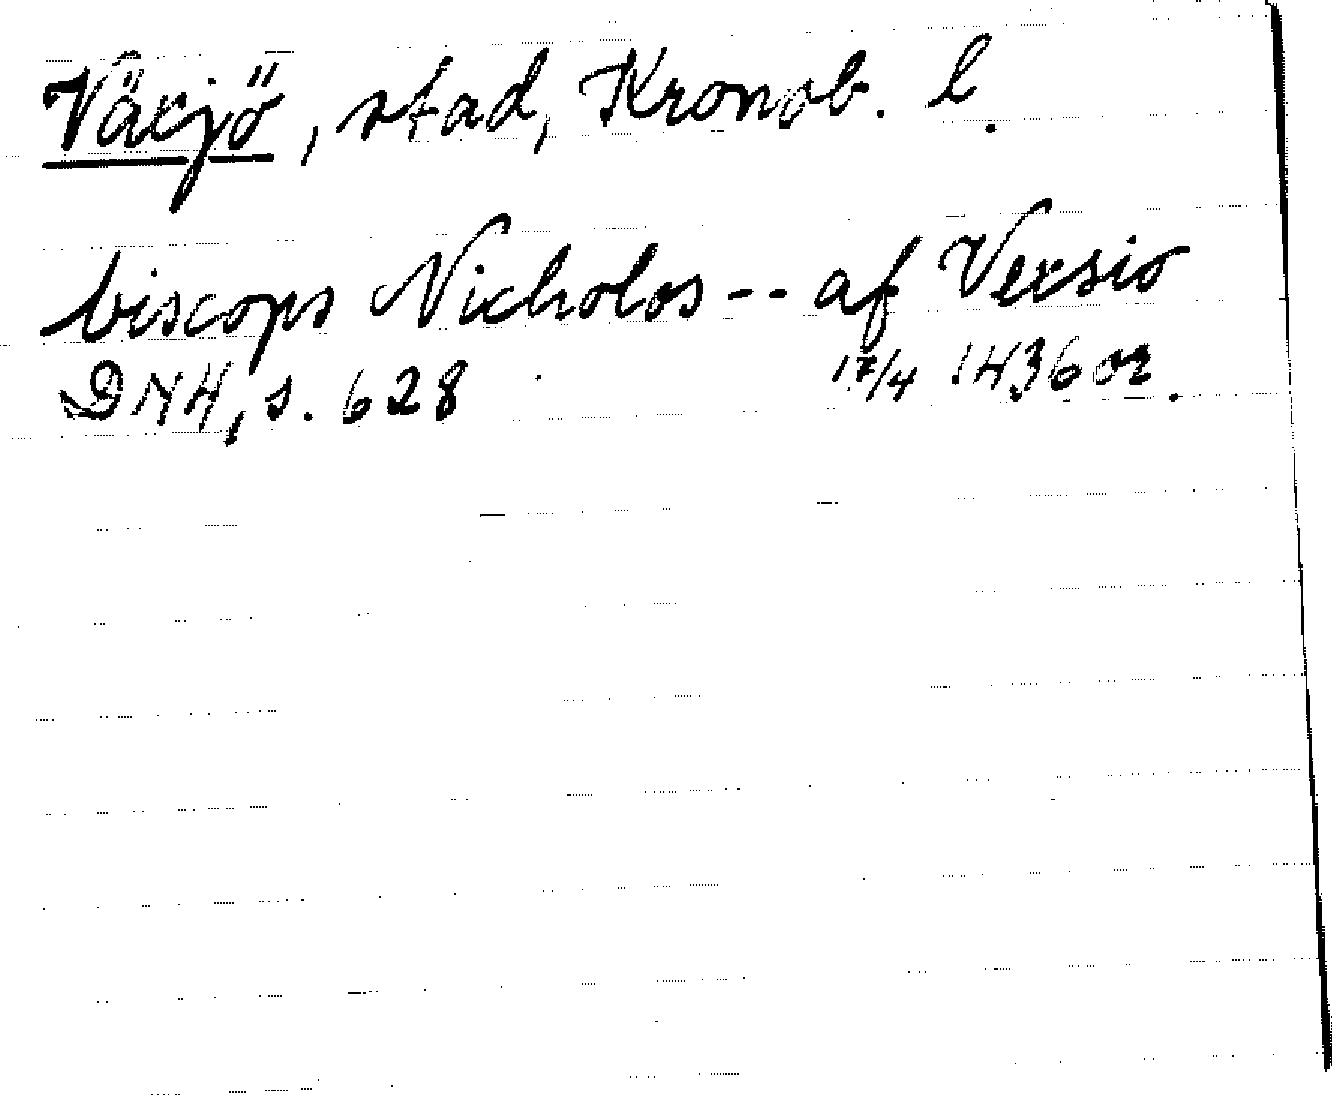 Växjö, stad, Kronob. l.
biscops Nicholos -- af Vexsio
DN4, s. 628 17/4 1436 or.